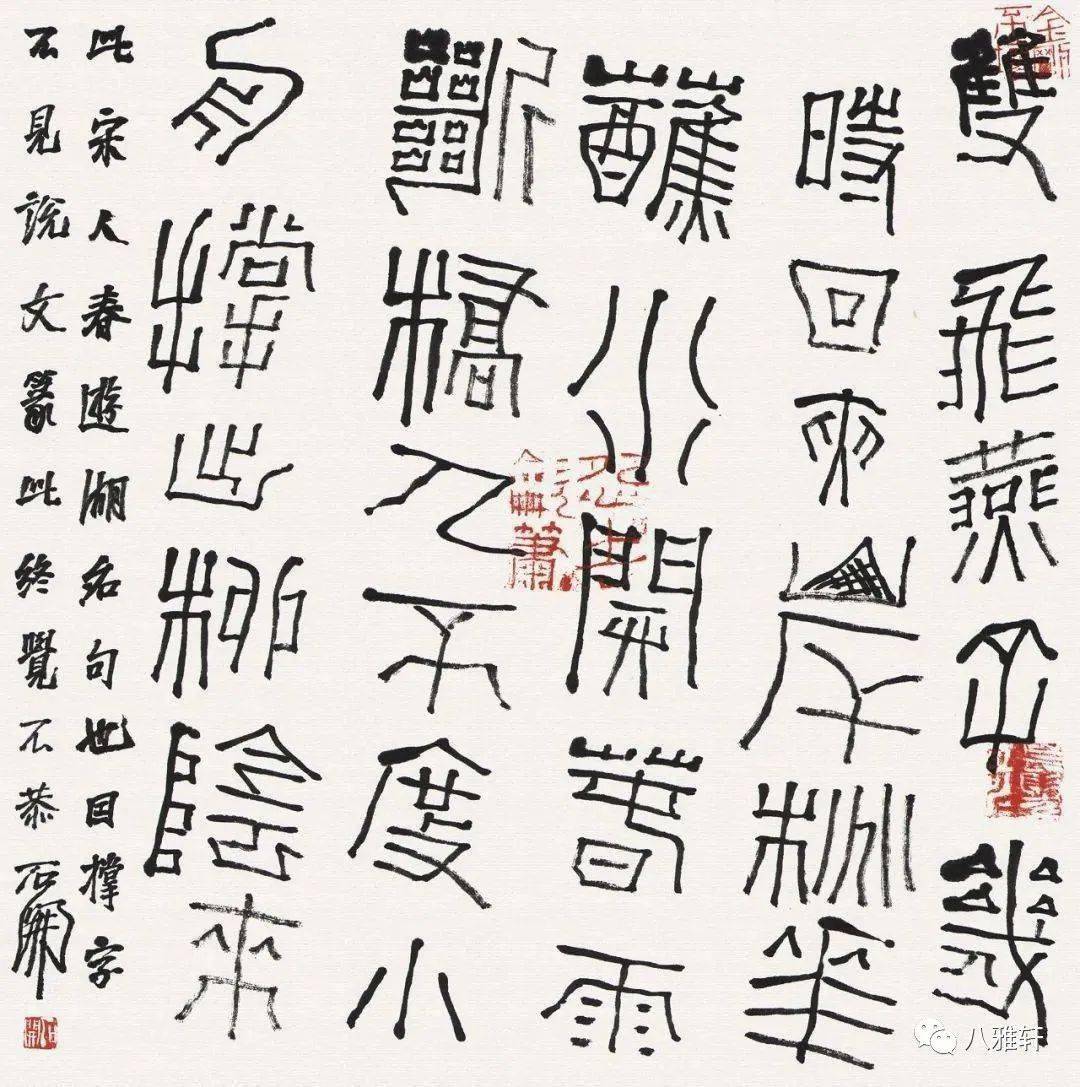 雙飛燕子幾
時回夾岸桃花
蘸水開春雨
斷橋人不度小
舟撐出柳陰來
此宋人春遊湖名句也因撐字
不見說文篆此終覺不恭石開
石開
八雅轩